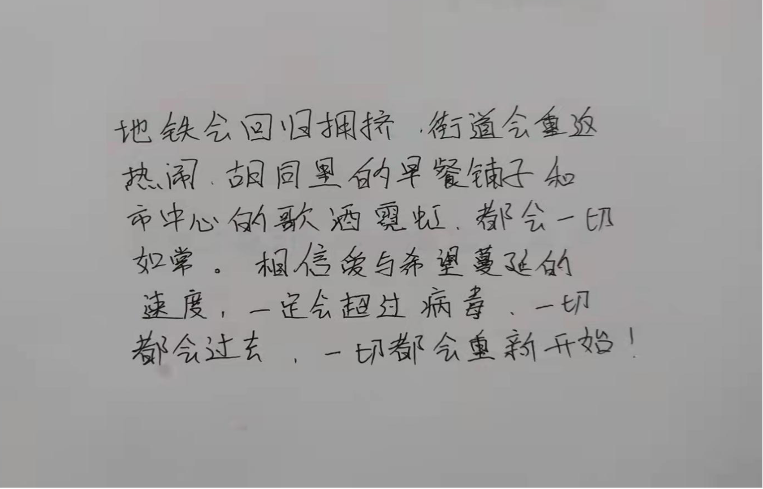 地铁会回归拥挤，街道会重返
热闹，胡同里的早餐铺子和
市中心的歌酒霓虹，都会一切
如常。相信爱与希望蔓延的
速度，一定会超过病毒，一切
都会过去，一切都会重新开始！